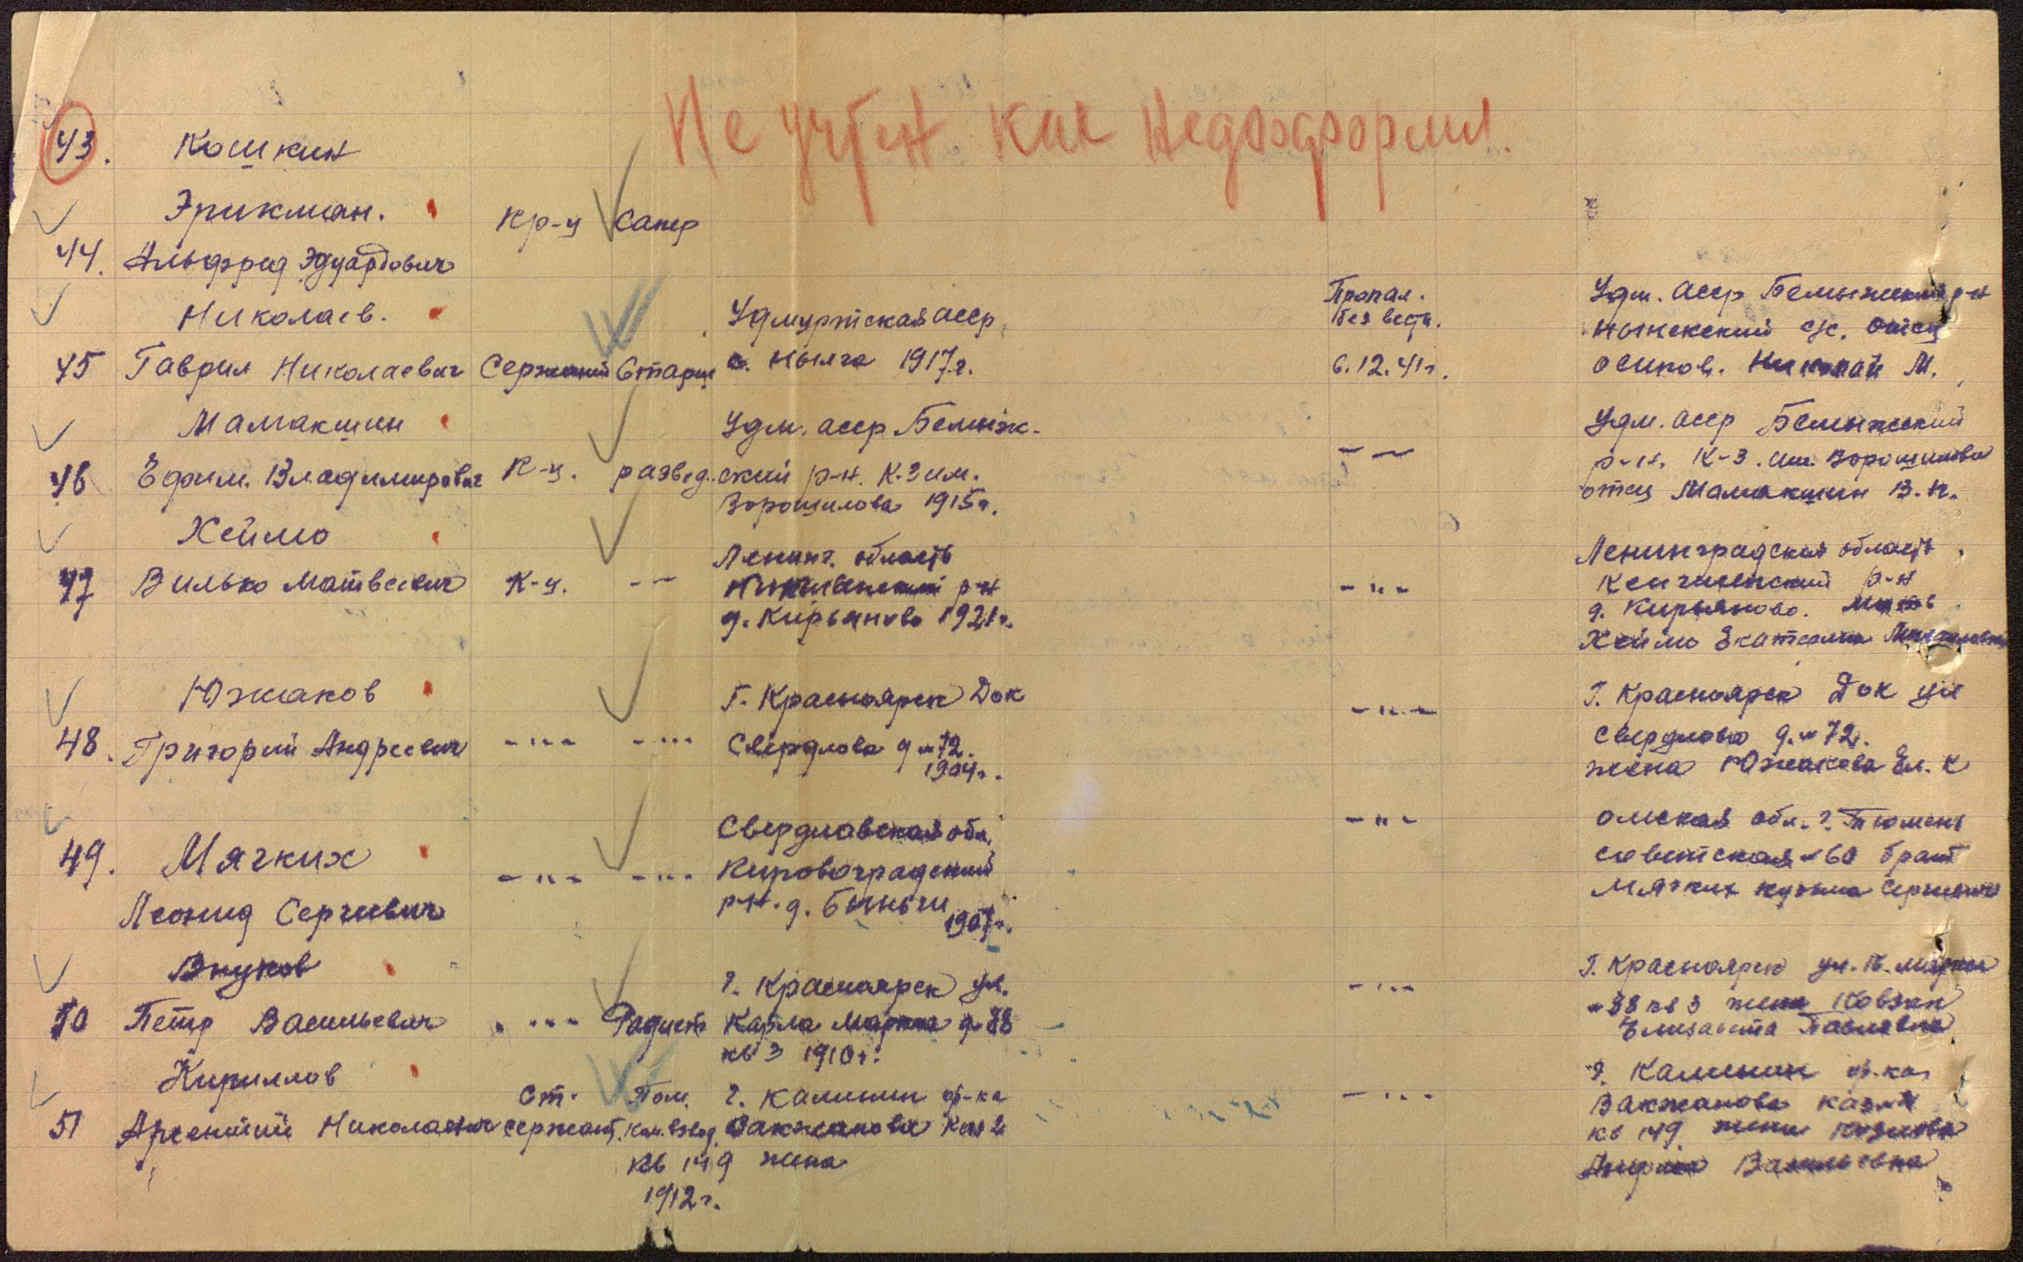 Не учтен как недооформл.
43. Кошкин
Эрикман.
44. Альфред Эдуардович Кр-ц Сапер
Николаев.
45 Гаврил Николаевич Сержант Старш
Удмуртская асср
с. Нылга 1917г.
Пропал.
без вести.
6.12.41г.
Удм. асср р-н
с/с. отец
Осипов. Николай М.
Мамакшин
46 Ефим. Владимирович К-ц. развед.
Удм. асср Бемыж-
ский р-н. К-з им.
Ворошилова 1915г.
- -
Удм. асср Бемыжский
р-н. К-з. им. Ворошилова
отец Мамакшин В.Н.
Хеймо
47 Вилько Матвеевич К-ц. - -
Ленинг. область
р-н
д. Кирьяново 1921г.
- " -
Ленинградская область
р-н
д. Кирьяново. Мать
Хеймо Екатерина
Южаков
48. Григорий Андреевич - " - - " -
Г. Красноярск Док
Свердлова д № 72.
1904г.
- " -
Г. Красноярск Док ул
Свердлова д. № 72.
жена Южакова Ел. К
49. Мягких
Леонид Сергеевич - " - - " -
Свердлавская обл.
Кировоградский
р-н. д. Быньги
1907г.
- " -
омская обл. г. Тюмень
советская № 60 брат
Мягких кузьма Сергеевич
Внуков
50 Петр Васильевич - " - Радист
г. Красноярск ул.
Карла Маркса д. 88
кв 3 1910г.
- " -
Г. Красноярск ул. К. Маркса
№ 88 кв 3 жена Ковзан
Елизавета Павловна
Кириллов
51 Арсентий Николаевич
Ст.
сержант.
Пом.
Ком. взвод.
г. Калинин ф-ка
Вакжанова Каз
кв 149 жена
1912г.
- " -
г. Калинин ф-ка
Вакжанова казм
кв 149 жена
Васильевна